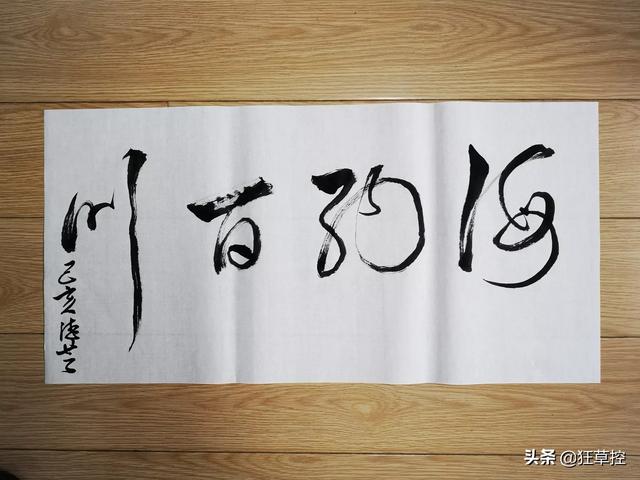 海纳百川
己亥
头条 @狂草控